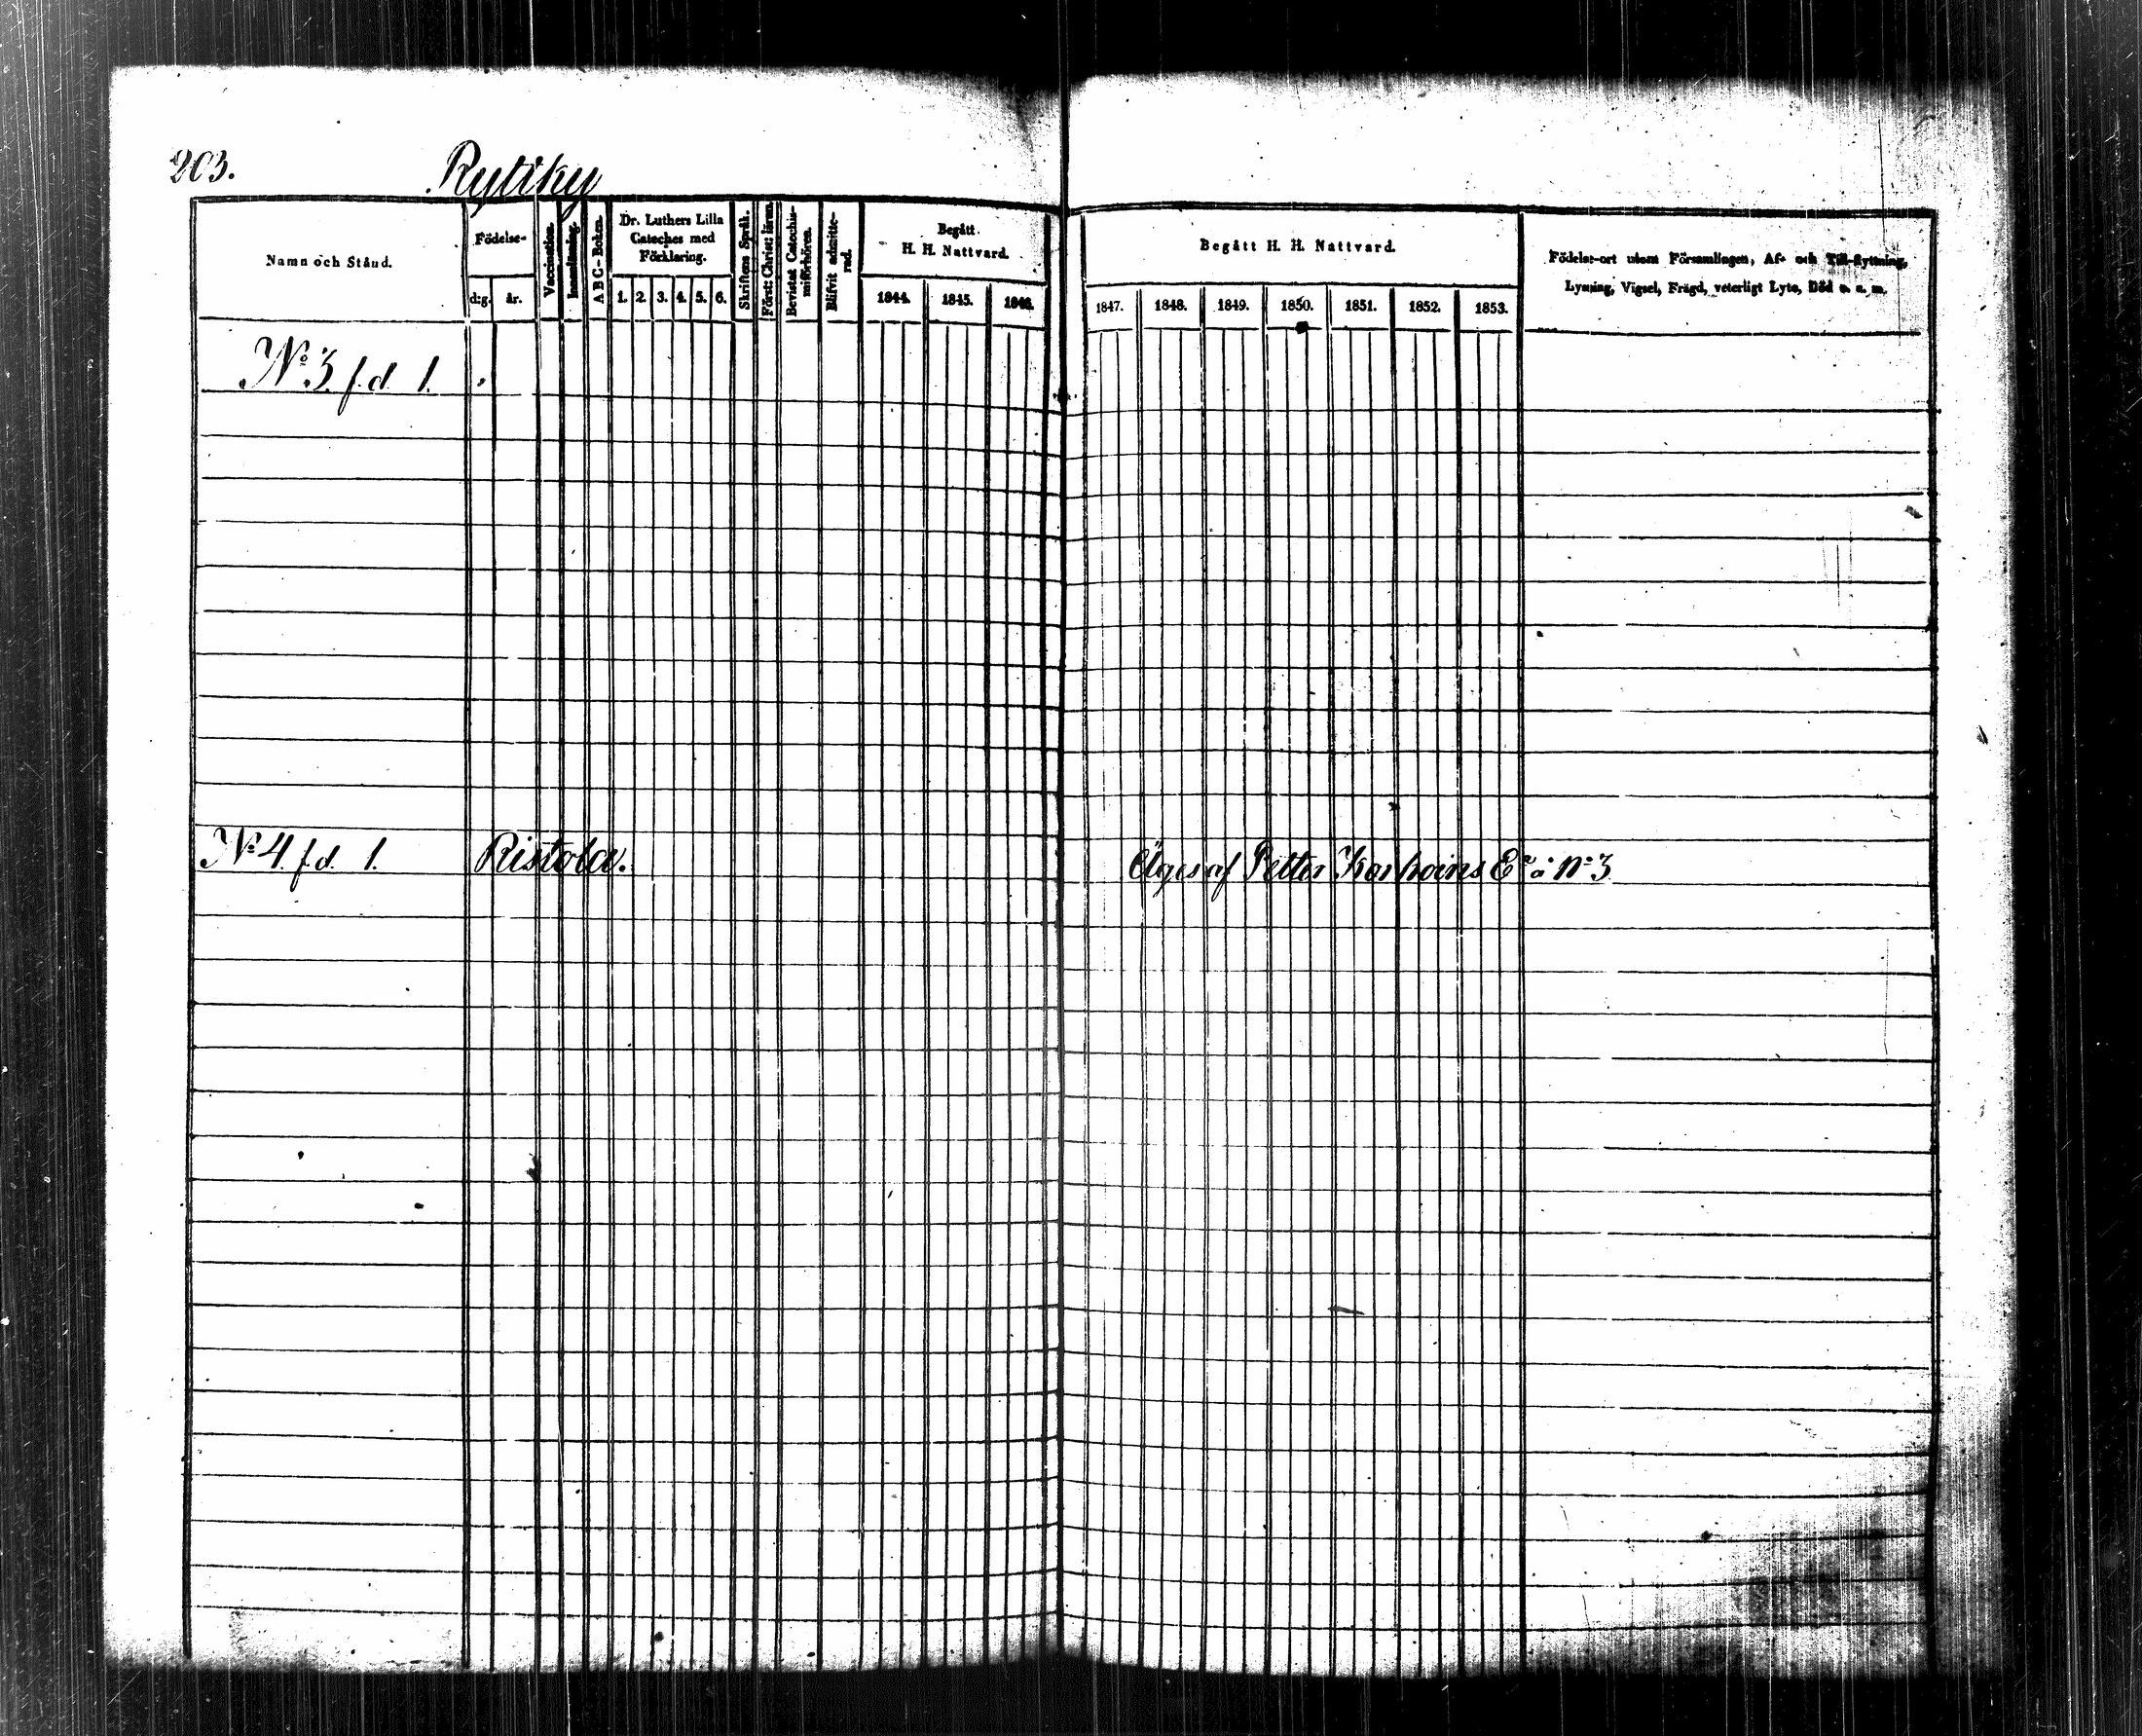 203. Rytiky
Namn och Stånd.
Födelse-
d:g. år.
Vaccination.
Innanläsning.
A B C-Boken.
Dr. Luthers Lilla
Cateches med
Förklaring.
1. 2. 3. 4. 5. 6.
Skriftens Språk.
Först: Christ: läran.
Bevistat Catechis-
miförhören.
Blifvit admitte-
rad.
Begått
H. H. Nattvard.
1844. 1845. 1846.
Begått H. H. Nattvard.
1847. 1848. 1849. 1850. 1851. 1852. 1853.
Födelse-ort utom Församlingen, Af- och Till-flyttning,
Lysning, Vigsel, Frägd, veterligt Lyte, Död o. s. m.
No 3 f.d 1.
No 4 f.d. 1. Ristola. Äges af Petter Korhoins Er å No 3